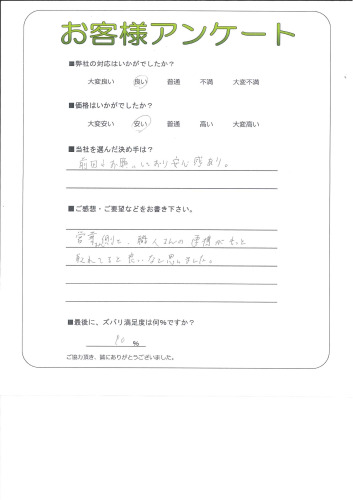 お客様アンケート
■弊社の対応はいかがでしたか？
大変良い 良い 普通 不満 大変不満
■価格はいかがでしたか？
大変安い 安い 普通 高い 大変高い
■当社を選んだ決め手は？
前回もお願いしており安心感あり。
■ご感想・ご要望などをお書き下さい。
営業側と、職人さんの連携がもっと
取れてると良いなと思いました。
■最後に、ズバリ満足度は何%ですか？
90 %
ご協力頂き、誠にありがとうございました。